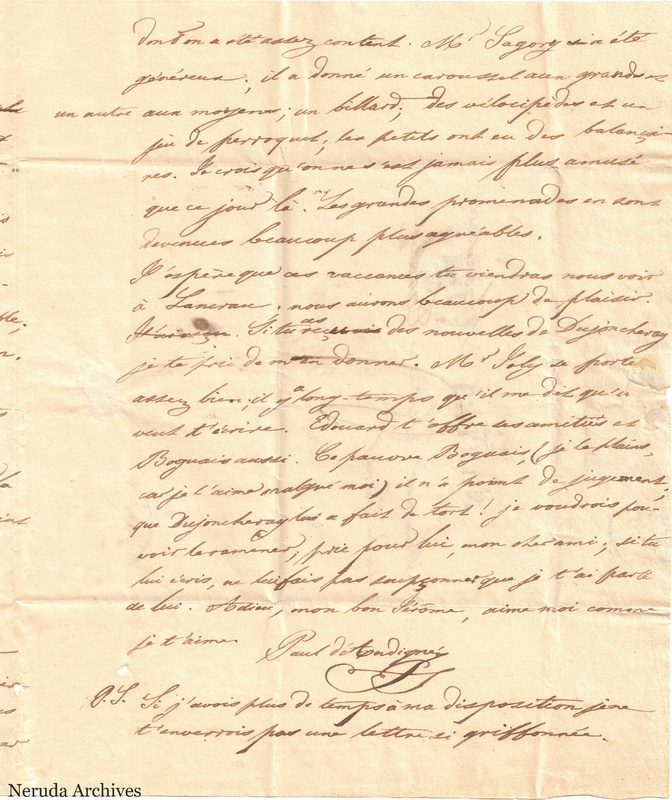 dont on a été assez content. Mr Sagory a été
généreux; il a donné un caroussel aux grands et
un autre aux moyens; un billard; des vélocipèdes et un
jeu de perroquet; les petits ont eu des balançoi
res. Je crois qu'on ne s'est jamais plus amusé
que ce jour là. Les grandes promenades en sont
devenues beaucoup plus agréables.
J'espère que ces vaccances tu viendras nous voir
à Lancrau. nous aurons beaucoup de plaisir.
Si tu as des nouvelles de Dujoncheray
je te prie de m'en donner. Mr Joly se porte
assez bien; il y a long-temps qu'il me dit qu'il
veut t'écrire. Edouard t'offre ses amitiés et
Boguais aussi. Ce pauvre Boguais, (je le plains,
car je l'aime malgré moi) il n'a point de jugement,
que Dujoncheray lui a fait de tort! je voudrois pou
voir le ramener; prie pour lui, mon cher ami; si tu
lui écris, ne lui fais pas soupçonner que je t'ai parlé
de lui. Adieu, mon bon Jérôme, aime moi comme
je t'aime
Paul d'Andigné
P.S. Si j'avois plus de temps à ma disposition je ne
t'enverrois pas une lettre si griffonnée.
Neruda Archives